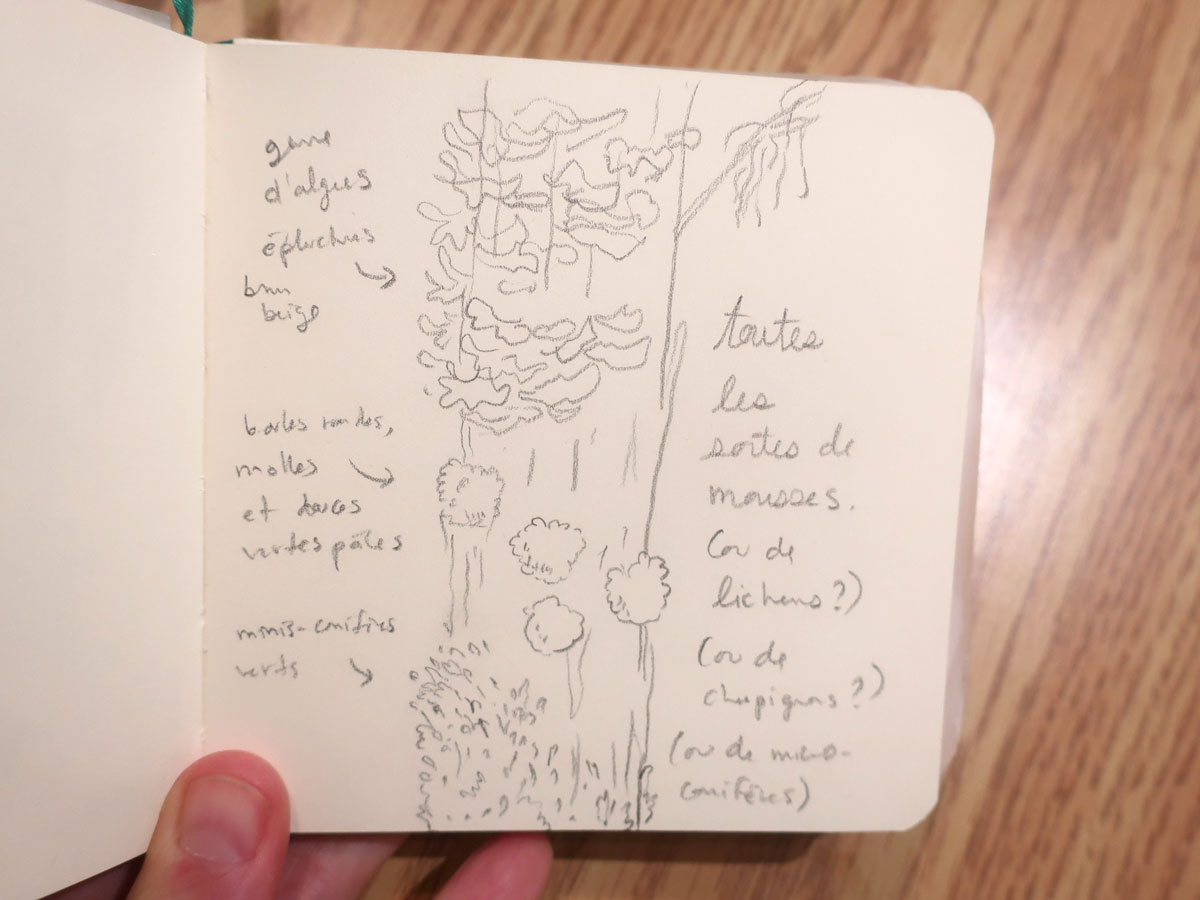 genre
d'algues
épluchus
brun
beige
boules rondes,
molles
et douces
vertes pâles
minis-conifères
verts
toutes
les
sortes de
mousses.
(ou de
lichens?)
(ou de
champignons?)
(ou de micro-
conifères)